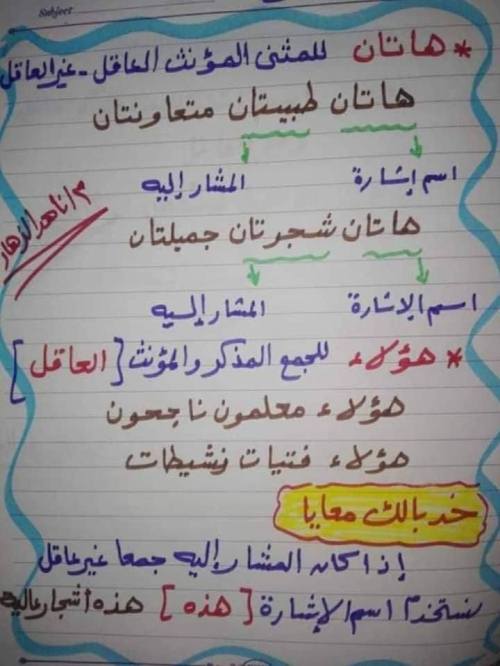 Subject
* هاتان للمثنى المؤنث العاقل - غير العاقل
هاتان طبيبتان متعاونتان
اسم إشارة المشار إليه
هاتان شجرتان جميلتان
اسم الإشارة المشار إليه
* هؤلاء للجمع المذكر والمؤنث [العاقل]
هؤلاء معلمون ناجحون
هؤلاء فتيات نشيطات
خد بالك معايا
إذا كان المشار إليه جمعا غير عاقل
نستخدم اسم الإشارة [هذه] هذه أشجار عالية
م/ناهد الزهار